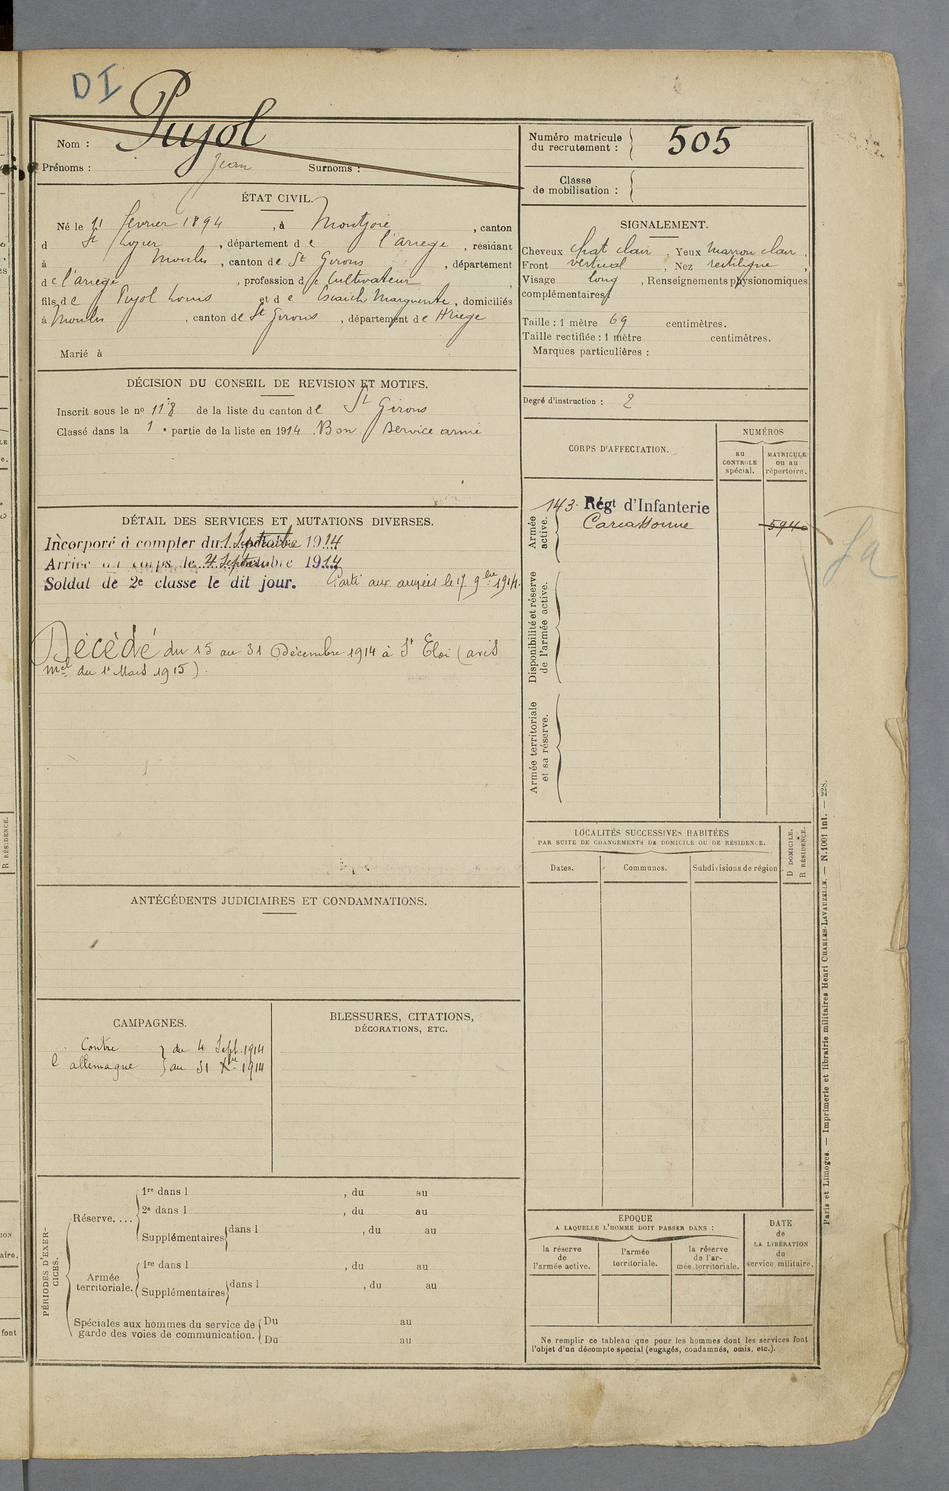 DI
Pujol
Nom :
Prénoms : Jean Surnoms :
ÉTAT CIVIL.
Né le 11 février 1894, à Montjoie, canton
d St Lizier, département de l'Ariège, résidant
à Moulis, canton de St Girons, département
de l'ariège, profession de Cultivateur
fils de Pujol Louis et de Marguerite, domiciliés
à Moulis, canton de St Girons, département de Ariège
Marié à
DÉCISION DU CONSEIL DE REVISION ET MOTIFS.
Inscrit sous le no 118 de la liste du canton de St Girons
Classé dans la 1e partie de la liste en 1914 Bon service armé
DÉTAIL DES SERVICES ET MUTATIONS DIVERSES.
Incorporé à compter du 1 Septembre 1914
Arrivé au corps le 4 Septembre 1914
Soldat de 2e classe le dit jour. Parti aux armées le 17 9bre 1914.
Décédé du 15 au 31 Décembre 1914 à St Eloi (avis
mel du 1er Mars 1915).
ANTÉCÉDENTS JUDICIAIRES ET CONDAMNATIONS.
CAMPAGNES.
Contre } du 4 Sept. 1914
l'allemagne } au 31 Xbre 1914
BLESSURES, CITATIONS,
DÉCORATIONS, ETC.
PÉRIODES D'EXERCICES.
Réserve....
1re dans l , du au
2e dans l , du au
Supplémentaires dans l , du au
Armée territoriale.
1re dans l , du au
Supplémentaires dans l , du au
Spéciales aux hommes du service de garde des voies de communication.
Du au
Du au
Numéro matricule
du recrutement : 505
Classe
de mobilisation :
SIGNALEMENT.
Cheveux chat clair, Yeux marron clair,
Front vertical, Nez rectiligne,
Visage long, Renseignements physionomiques
complémentaires
Taille : 1 mètre 69 centimètres.
Taille rectifiée : 1 mètre centimètres.
Marques particulières :
Degré d'instruction : 2
CORPS D'AFFECTATION.
NUMÉROS
au CONTROLE spécial.
MATRICULE ou au répertoire.
Armée active.
143e Régt d'Infanterie
Carcassonne
5940
Disponibilité et réserve de l'armée active.
Armée territoriale et sa réserve.
LOCALITÉS SUCCESSIVES HABITÉES
PAR SUITE DE CHANGEMENTS DE DOMICILE OU DE RÉSIDENCE.
D DOMICILE.
R RÉSIDENCE.
Dates. Communes. Subdivisions de région
EPOQUE
A LAQUELLE L'HOMME DOIT PASSER DANS :
la réserve de l'armée active.
l'armée territoriale.
la réserve de l'armée territoriale.
DATE de LA LIBÉRATION du service militaire.
Ne remplir ce tableau que pour les hommes dont les services font
l'objet d'un décompte spécial (engagés, condamnés, omis, etc.).
Paris et Limoges. — Imprimerie et librairie militaires Henri CHARLES-LAVAUZELLE. — N. 1001 int. — 228.
R RÉSIDENCE.
font